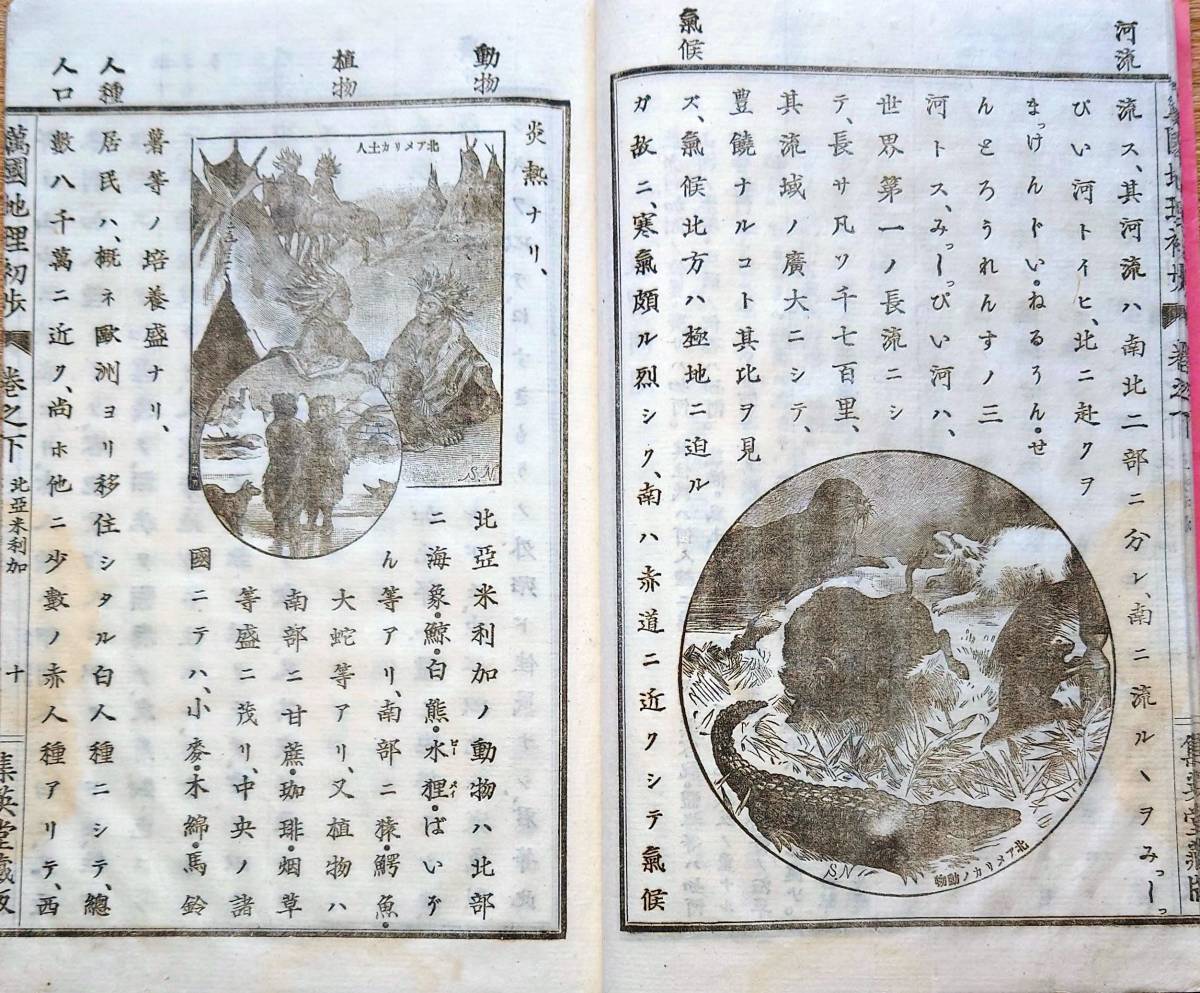 河流
流ス、其河流ハ南北二部ニ分レ、南ニ流ルヽヲみっしっ
ぴい河トイヒ、北ニ赴クヲ
まっけんドい・ねるそん・せ
んとろうれんすノ三
河トス、みっしっぴい河ハ、
世界第一ノ長流ニシ
テ、長サ凡ソ千七百里、
其流域ノ廣大ニシテ、
豊饒ナルコト其比ヲ見
氣候
ズ、氣候北方ハ極地ニ迫ル
ガ故ニ、寒氣頗ル烈シク、南ハ赤道ニ近クシテ氣候
北アメリカノ動物
S.N
炎熱ナリ、
動物
北亞米利加ノ動物ハ北部
ニ海象・鯨・白熊・水狸・ばいそ
ビーバイ
ん等アリ、南部ニ猿・鰐魚・
大蛇等アリ、又植物ハ
植物
南部ニ甘蔗・珈琲・烟草
等盛ニ茂リ、中央ノ諸
國ニテハ、小麥・木綿・馬鈴
薯等ノ培養盛ナリ、
人種
居民ハ、概ネ歐洲ヨリ移住シタル白人種ニシテ、總
人口
數八千萬ニ近ク、尚ホ他ニ少數ノ赤人種アリテ、西
北アメリカ土人
S.N
萬國地理初歩 卷之下 北亞米利加 十 集英堂藏版